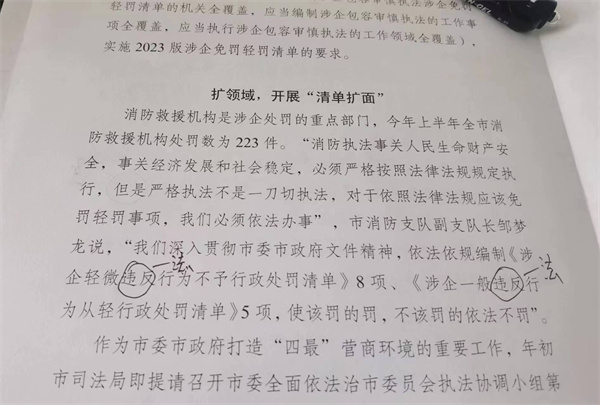 轻罚清单的机关全覆盖，应当编制涉企包容审慎执法的工作事
项全覆盖，应当执行涉企包容审慎执法的工作领域全覆盖），
实施 2023 版涉企免罚轻罚清单的要求。
扩领域，开展“清单扩面”
消防救援机构是涉企处罚的重点部门，今年上半年全市消
防救援机构处罚数为 223 件。“消防执法事关人民生命财产安
全，事关经济发展和社会稳定，必须严格按照法律法规规定执
行，但是严格执法不是一刀切执法，对于依照法律法规应该免
罚轻罚事项，我们必须依法办事”，市消防支队副支队长邹梦
龙说，“我们深入贯彻市委市政府文件精神，依法依规编制《涉
法
企轻微违反行为不予行政处罚清单》8 项、《涉企一般违反行
法
为从轻行政处罚清单》5 项，使该罚的罚，不该罚的依法不罚”。
作为市委市政府打造“四最”营商环境的重要工作，年初
市司法局即提请召开市委全面依法治市委员会执法协调小组第